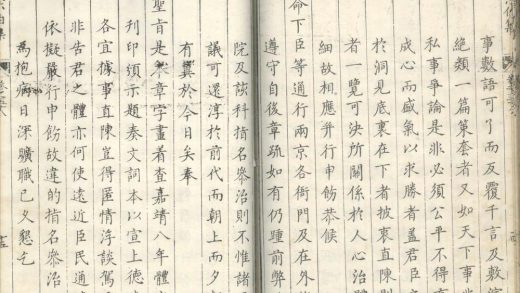 事數語可了而反覆千言及敷
絕類一篇策套者又如天下事
私事爭論是非必須公平不得
成心而盛氣以求勝者蓋君臣
於洞見底裏在下者披裏直陳則
者一覽可決所關係於人心治
細故相應并行申飭恭候
命下臣等通行兩京各衙門及在外
遵守自後章疏如有仍踵前弊
院及該科指名參治則不惟諸
議可還淳於前代而朝上而夕
有冀於今日矣奉
聖旨是奏章字畫着查嘉靖八年體
刋印頒示題奏文詞本以宣上德
各宜據事直陳豈得匿情浮談駕
非告君之體亦何使遠近臣民通
依擬嚴行申飭故違的指名參治
為抱病日深曠職已久懇乞